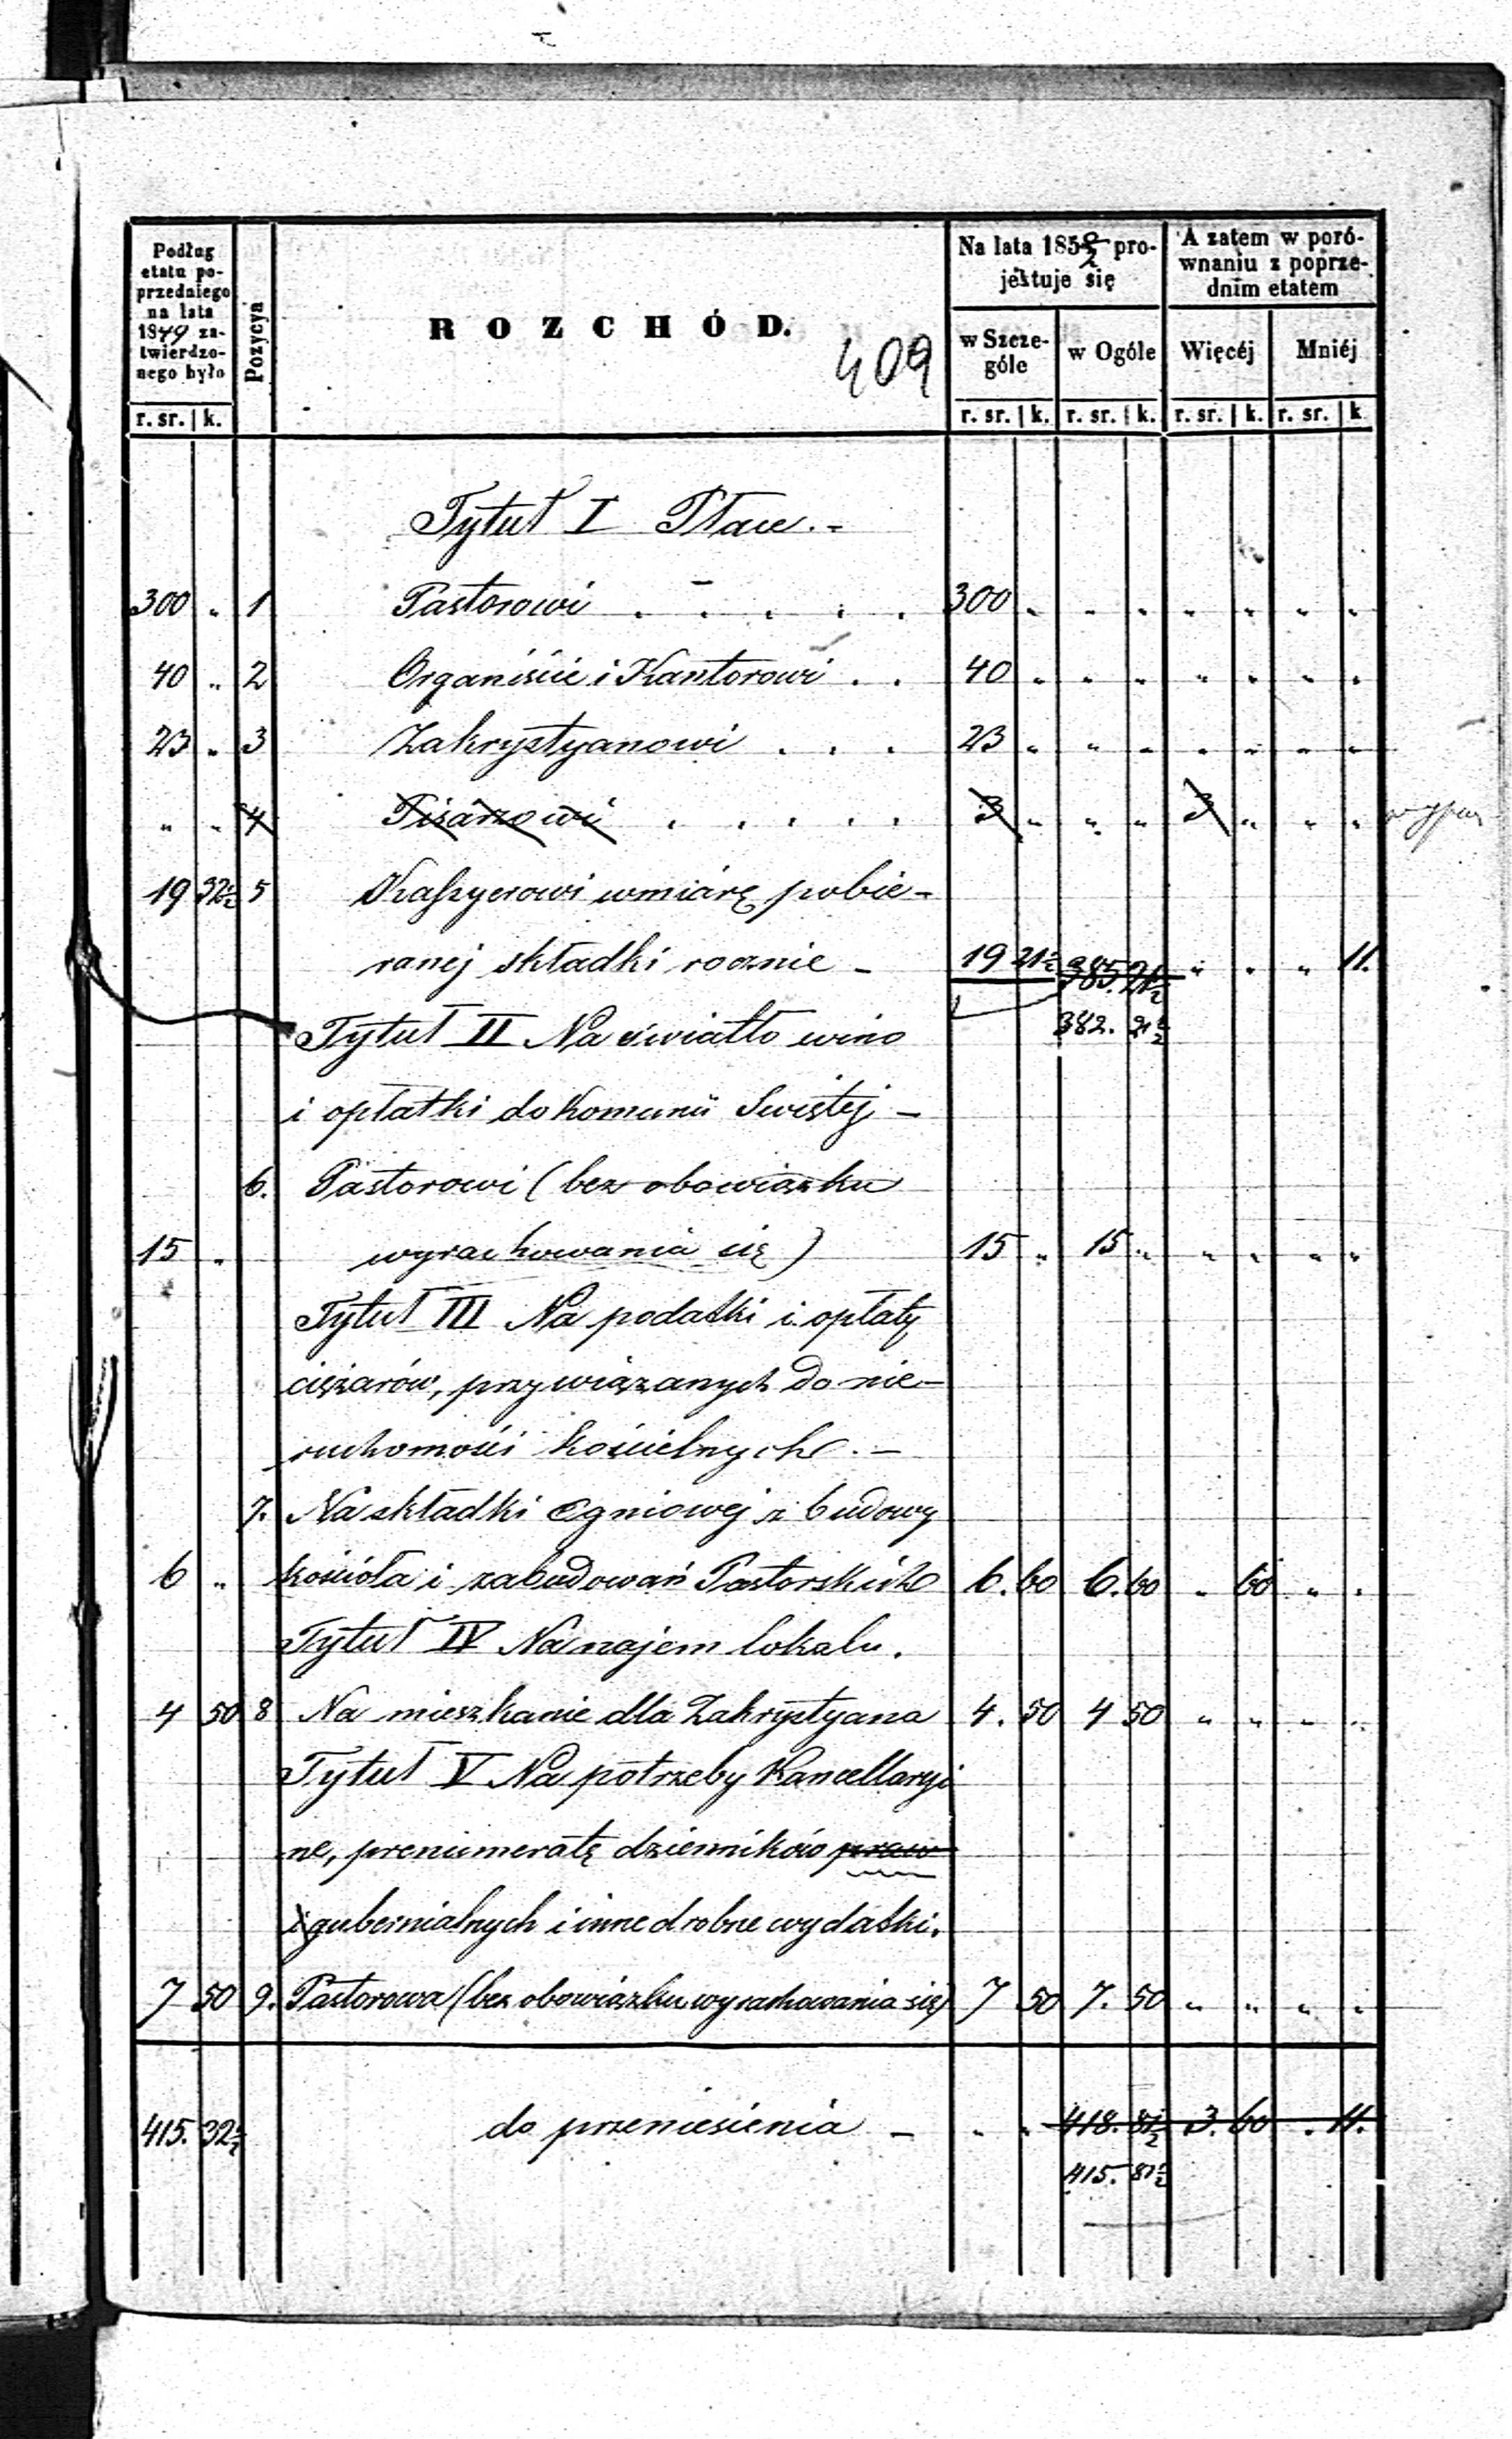 Podług etatu poprzedniego na lata 1849 zatwierdzonego było
Pozycya
ROZCHÓD.
409
Na lata 185 0/2 projektuje się
A zatem w porównaniu z poprzednim etatem
w Szczególe
w Ogóle
Więcéj
Mniéj
r. sr. | k.
r. sr. | k. r. sr. | k. r. sr. | k. r. sr. | k
Tytuł I Płace.-
300 " 1 Pastorowi . . . . . 300 " " " " " " "
40 " 2 Organiście i Kantorowi . . 40 " " " " " " "
23 " 3 Zakrystyanowi . . . 23 " " " " " " "
" " 4 Pisarzowi . . . . . 3 " " " 3 " " "
19 32½ 5 Kassyerowi wmiarę pobie-
ranej składki rocznie - 19 21½ 385. 21½ " " " 11.
382. 21½
Tytuł II Na światło wino
i opłatki do Komunii Swiętej -
6. Pastorowi (bez obowiązku
15 " wyrachowania się) 15 " 15 " " " " "
Tytuł III Na podatki i opłaty
ciężarów, przywiązanych do nie-
ruchomości kościelnych.-
7. Na składki Ogniowej z budowy
6 " kościoła i zabudowań Pastorskich 6. 60 6. 60 " 60 " "
Tytuł IV Na najem lokalu.
4 50 8 Na mieszkanie dla Zakrystyana 4. 50 4 50 " " " "
Tytuł V Na potrzeby Kancellaryi
ne, prenumeratę dzienników praw
i gubernialnych i inne drobne wydatki.
7 50 9. Pastorowa (bez obowiązku wyrachowania się) 7 50 7. 50 " " " "
415. 32½ do przeniesienia - " " 418. 81½ 3. 60 " 11.
415. 81½